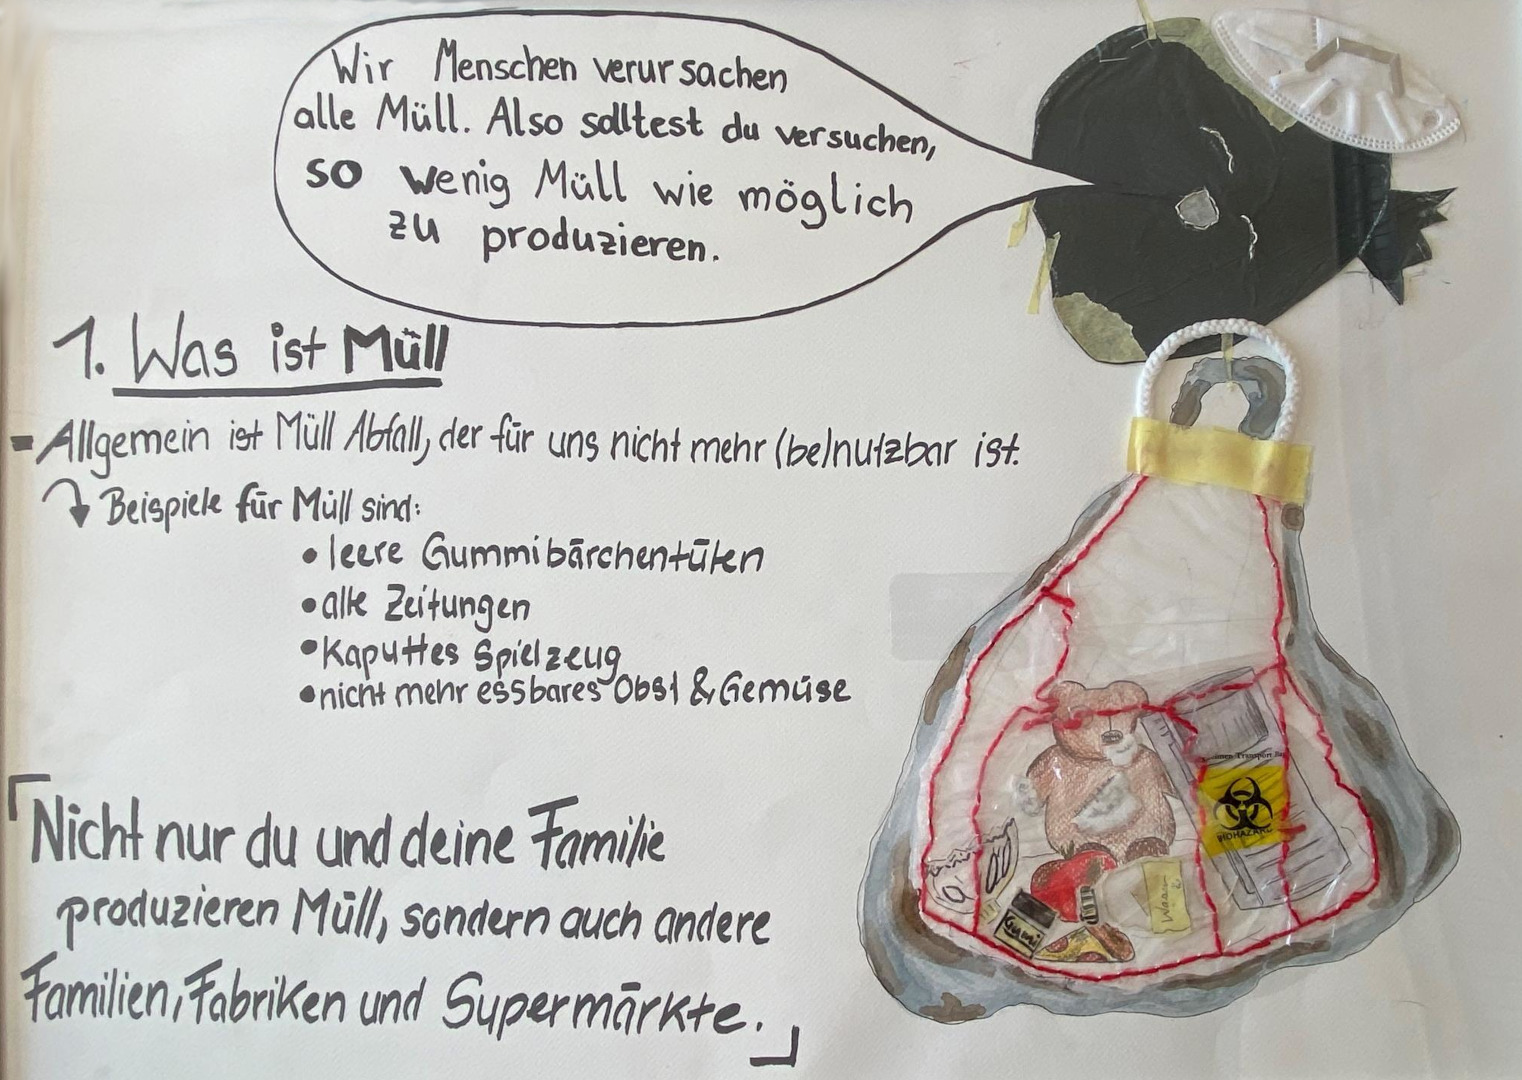 Wir Menschen verursachen
alle Müll. Also solltest du versuchen,
so wenig Müll wie möglich
zu produzieren.
1. Was ist Müll
- Allgemein ist Müll Abfall, der für uns nicht mehr (be)nutzbar ist.
Beispiele für Müll sind:
• leere Gummibärchentüten
• alte Zeitungen
• Kaputtes Spielzeug
• nicht mehr essbares Obst & Gemüse
Transport
BIOHAZARD
Gumi
Nicht nur du und deine Familie
produzieren Müll, sondern auch andere
Familien, Fabriken und Supermärkte.